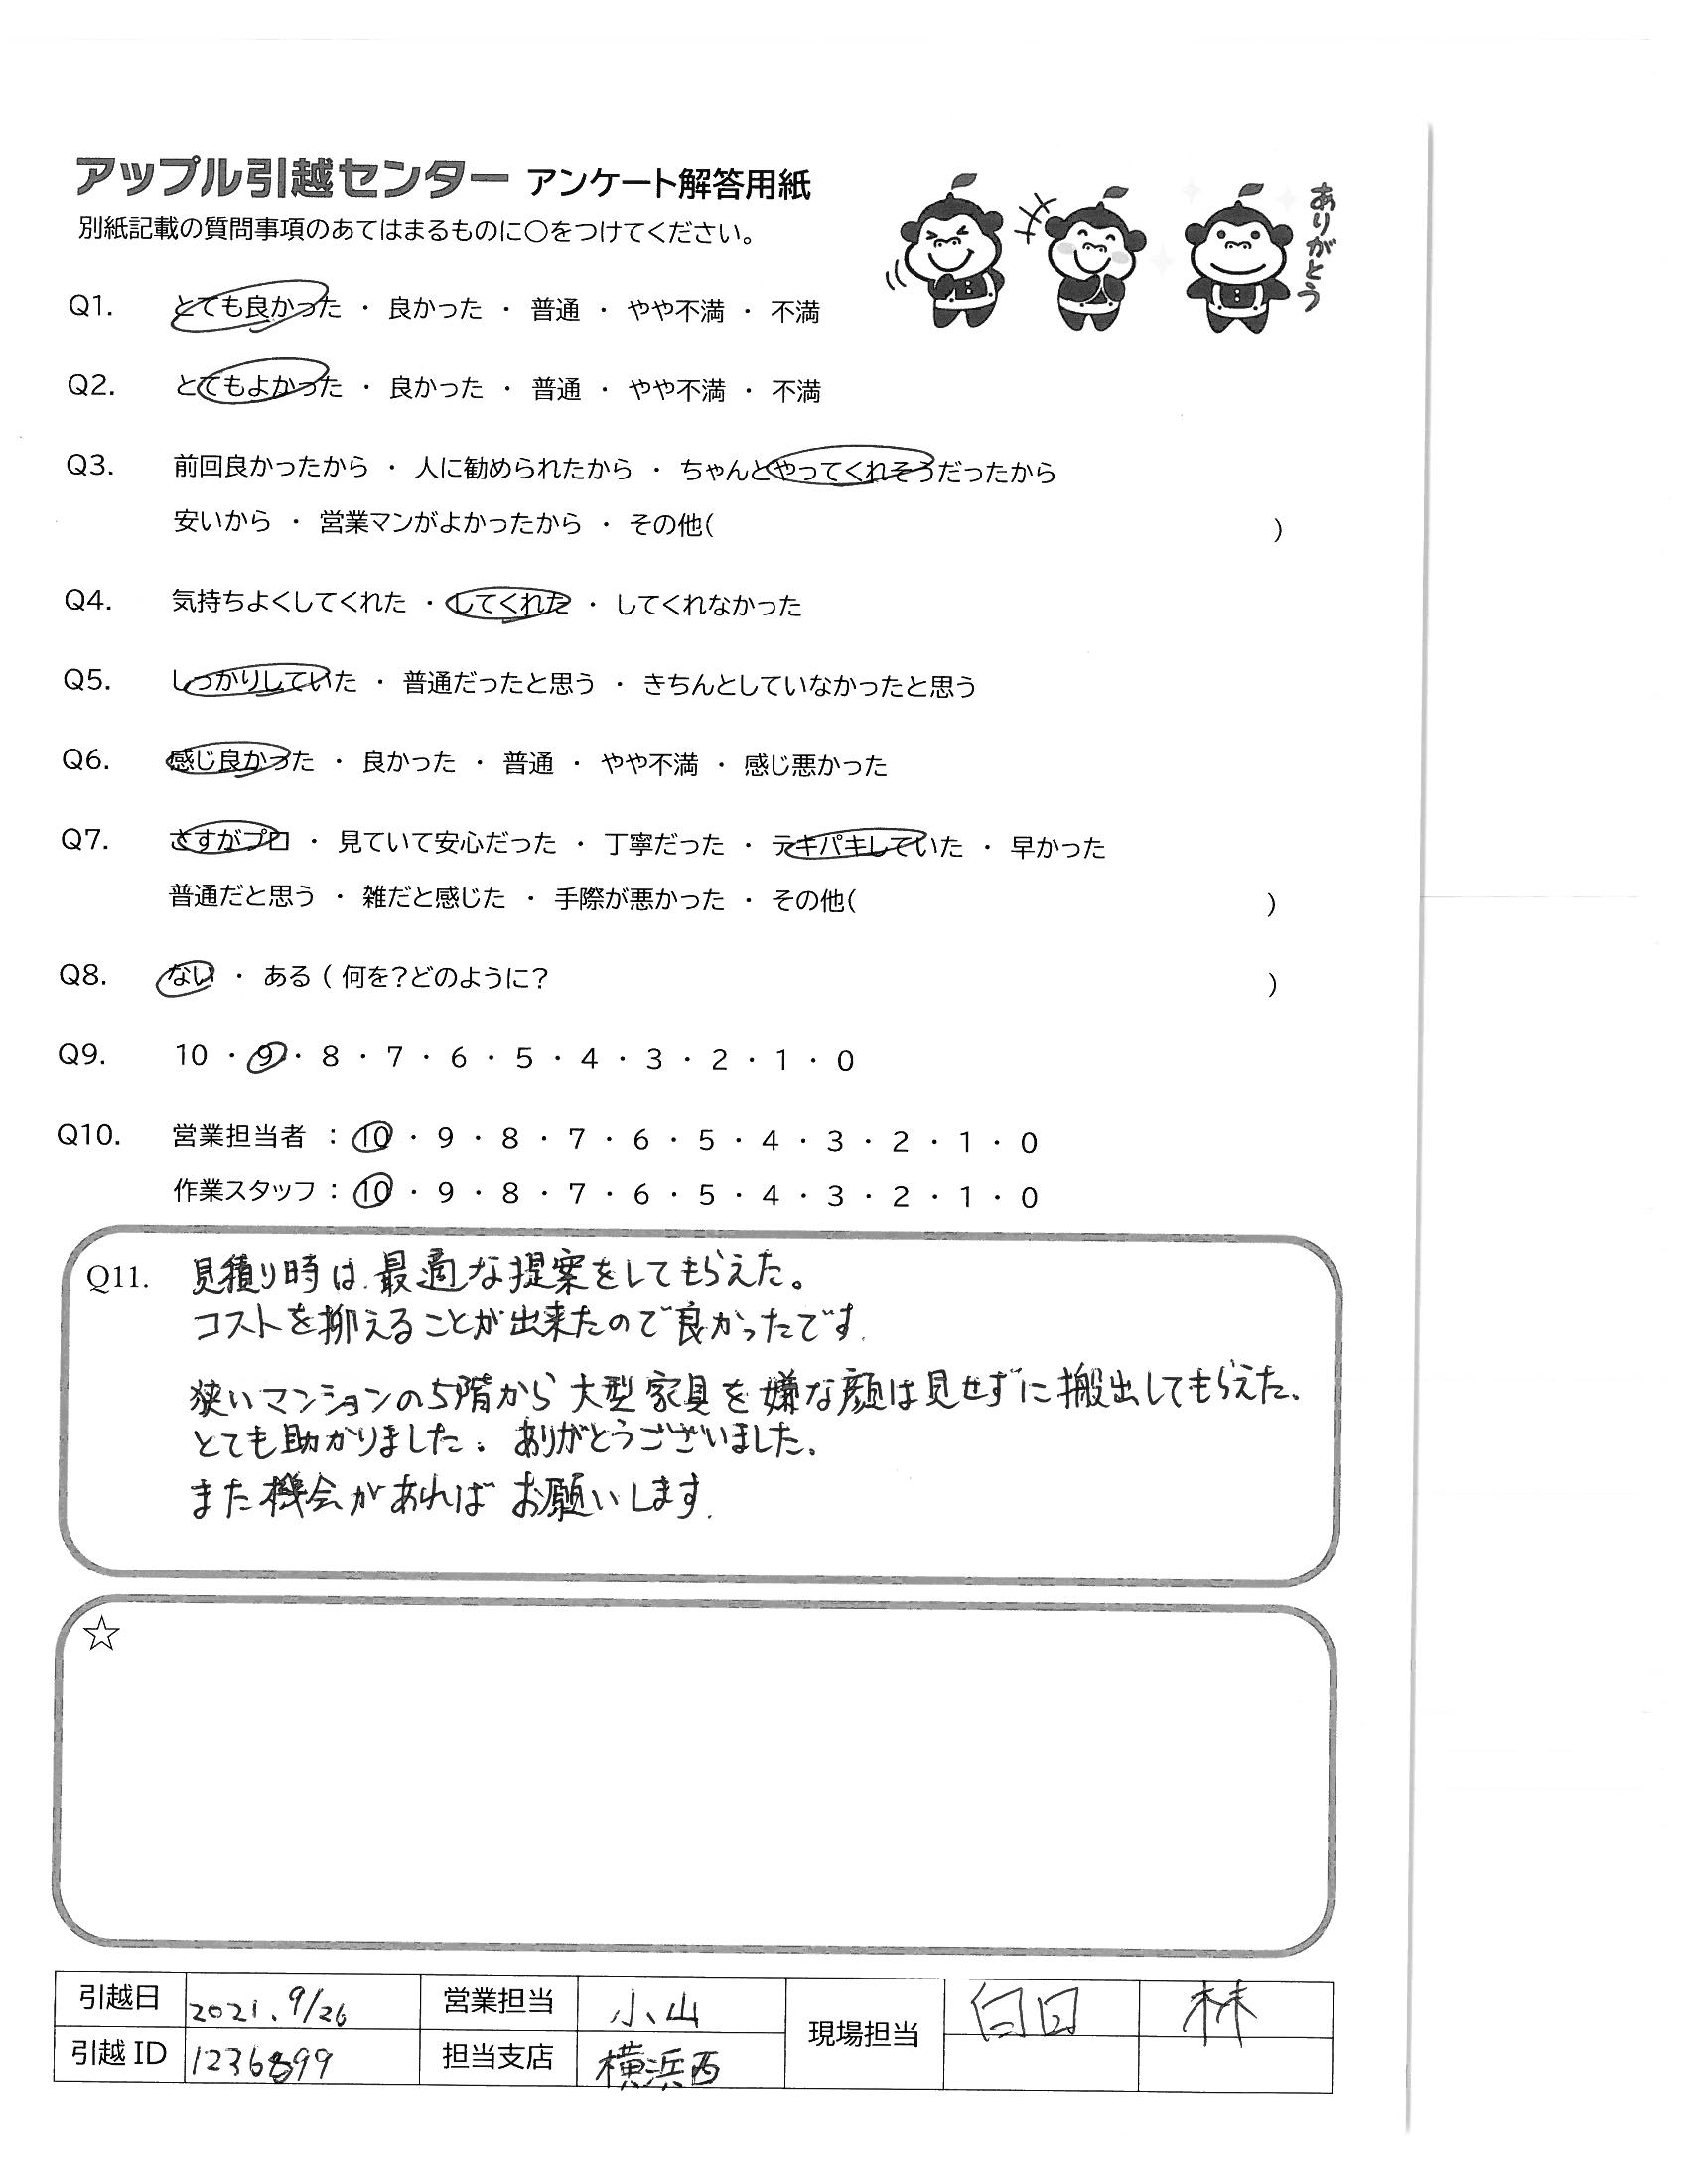 アップル引越センター アンケート解答用紙
ありがとう
別紙記載の質問事項のあてはまるものに〇をつけてください。
Q1. とても良かった ・ 良かった ・ 普通 ・ やや不満 ・ 不満
Q2. とてもよかった ・ 良かった ・ 普通 ・ やや不満 ・ 不満
Q3. 前回良かったから ・ 人に勧められたから ・ ちゃんとやってくれそうだったから
安いから ・ 営業マンがよかったから ・ その他( )
Q4. 気持ちよくしてくれた ・ してくれた ・ してくれなかった
Q5. しっかりしていた ・ 普通だったと思う ・ きちんとしていなかったと思う
Q6. 感じ良かった ・ 良かった ・ 普通 ・ やや不満 ・ 感じ悪かった
Q7. さすがプロ ・ 見ていて安心だった ・ 丁寧だった ・ テキパキしていた ・ 早かった
普通だと思う ・ 雑だと感じた ・ 手際が悪かった ・ その他( )
Q8. ない ・ ある ( 何を?どのように? )
Q9. 10 ・ 9 ・ 8 ・ 7 ・ 6 ・ 5 ・ 4 ・ 3 ・ 2 ・ 1 ・ 0
Q10. 営業担当者 : 10 ・ 9 ・ 8 ・ 7 ・ 6 ・ 5 ・ 4 ・ 3 ・ 2 ・ 1 ・ 0
作業スタッフ : 10 ・ 9 ・ 8 ・ 7 ・ 6 ・ 5 ・ 4 ・ 3 ・ 2 ・ 1 ・ 0
Q11. 見積り時は、最適な提案をしてもらえた。
コストを抑えることが出来たので良かったです.
狭いマンションの5階から大型家具を嫌な顔は見せずに搬出してもらえた、
とても助かりました。ありがとうございました。
また機会があればお願いします.
☆
引越日 2021. 9/26 営業担当 小山 現場担当 白田 林
引越 ID 1236899 担当支店 横浜西